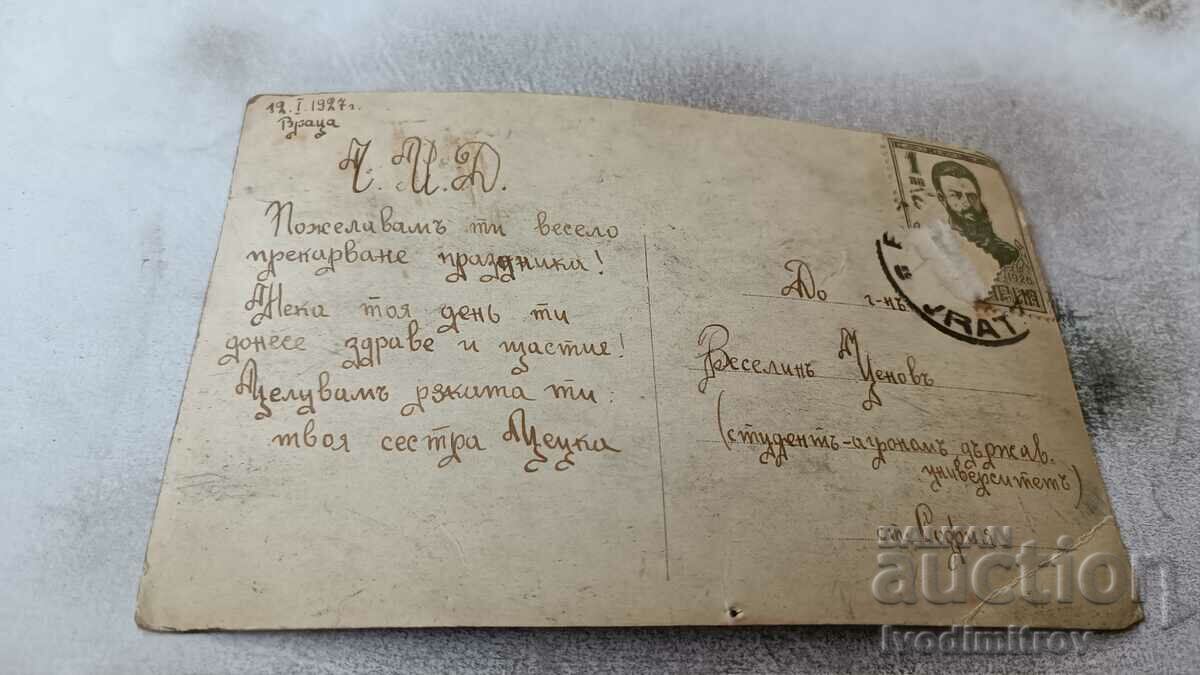 12.I.1927г.
Враца
Ч. И. Д.
Пожелавамъ ти весело
прекарване празника!
Нека тоя день ти
донесе здраве и щастие!
Целувамъ рѫката ти:
твоя сестра Цецка
До г-нъ
Веселинъ Ценовъ
(студентъ-агрономъ държав.
университетъ)
София
1
VRAT
BALKAN
auction
lvodimitrov